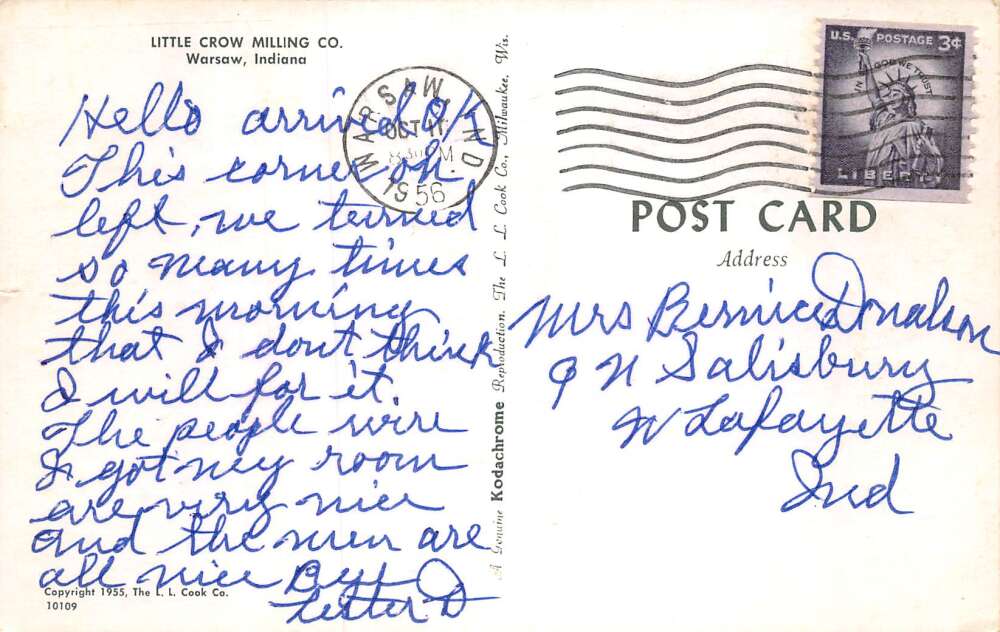 LITTLE CROW MILLING CO.
Warsaw, Indiana
Hello arrived OK
This corner on
left, we turned
so many times
this morning
that I dont think
I will for it.
The people wire
I got my room
are very nice
and the men are
all nice Bye
Lester D
Copyright 1955, The L. L. Cook Co.
10109
A Genuine Kodachrome Reproduction. The L. L. Cook Co., Milwaukee, Wis.
WARSAW IND
OCT 17
PM
1956
U.S. POSTAGE 3¢
IN GOD WE TRUST
LIBERTY
POST CARD
Address
Mrs Bernice Donalson
9 N Salisbury
W Lafayette
Ind